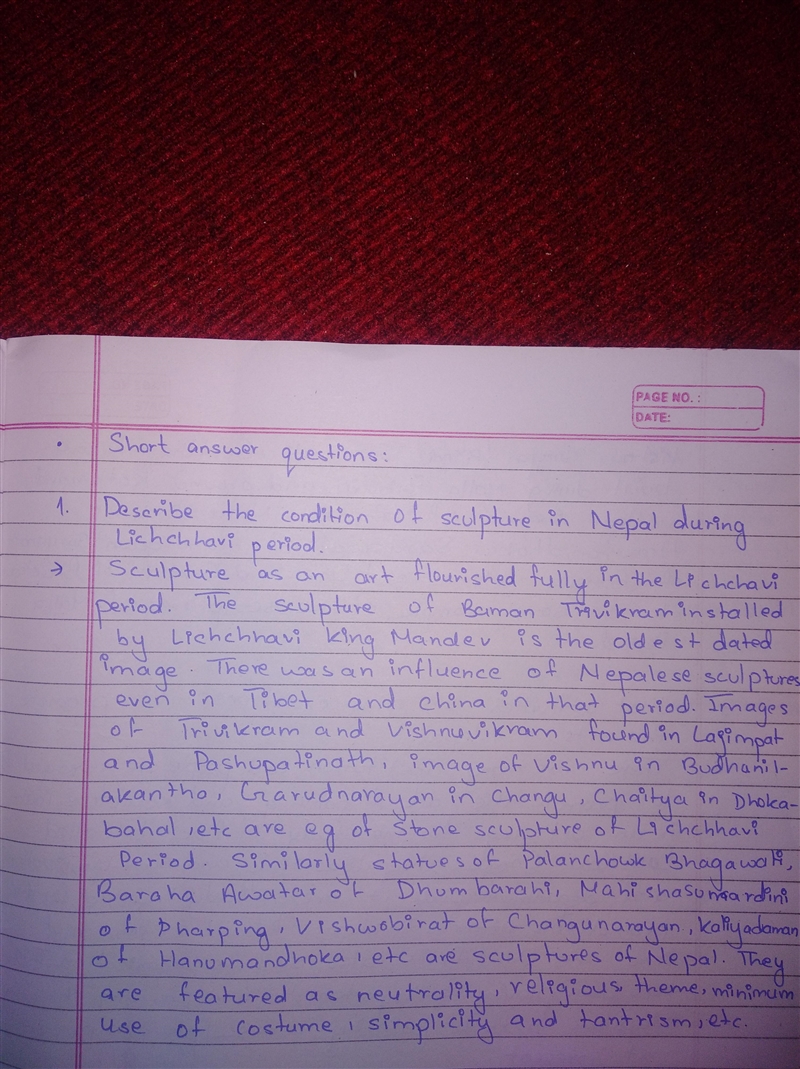 PAGE NO. :
DATE:
• Short answer questions:
1. Describe the condition of sculpture in Nepal during
Lichchhavi period.
→ Sculpture as an art flourished fully in the Lichchavi
period. The sculpture of Baman Trivikram installed
by Lichchhavi king Mandev is the oldest dated
image. There was an influence of Nepalese sculptures
even in Tibet and china in that period. Images
of Trivikram and Vishnuvikram found in Lazimpat
and Pashupatinath, image of Vishnu in Budhanil-
akantha, Garudnarayan in Changu, Chaitya in Dhoka-
bahal, etc are eg of Stone sculpture of Lichchhavi
Period. Similarly statues of Palanchowk Bhagawati,
Baraha Awatar of Dhumbarahi, Mahishasurmardini
of Pharping, Vishwobirat of Changunarayan, Kaliyadaman
of Hanumandhoka, etc are sculptures of Nepal. They
are featured as neutrality, religious theme, minimum
use of costume, simplicity and tantrism, etc.